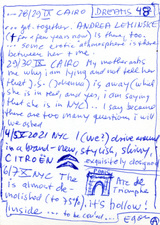 ...28/29 IX CAIRO DREAMS 48
or get together. ANDREA LOMINSKE
(for a few years now) is there, too.
... Some erotic atmosphere is there
between her + me.
29/30 IX CAIRO My mother asks
me why I am lying and not tell her
that J.S. (Pneuma) is away (what
she is in fact, and yes, I am saying
that she is in NYC).. I say because
there are too many questions, if I
will be asked.
4/5 X 2021 NYC I (we?) drive around
in a brand-new, stylish, skinny,
CITROËN exquisitely designed
6/7 X NYC The Arc de
is almost de- Triomphe
molished (to 75%), it's hollow!
inside ... to be cont...